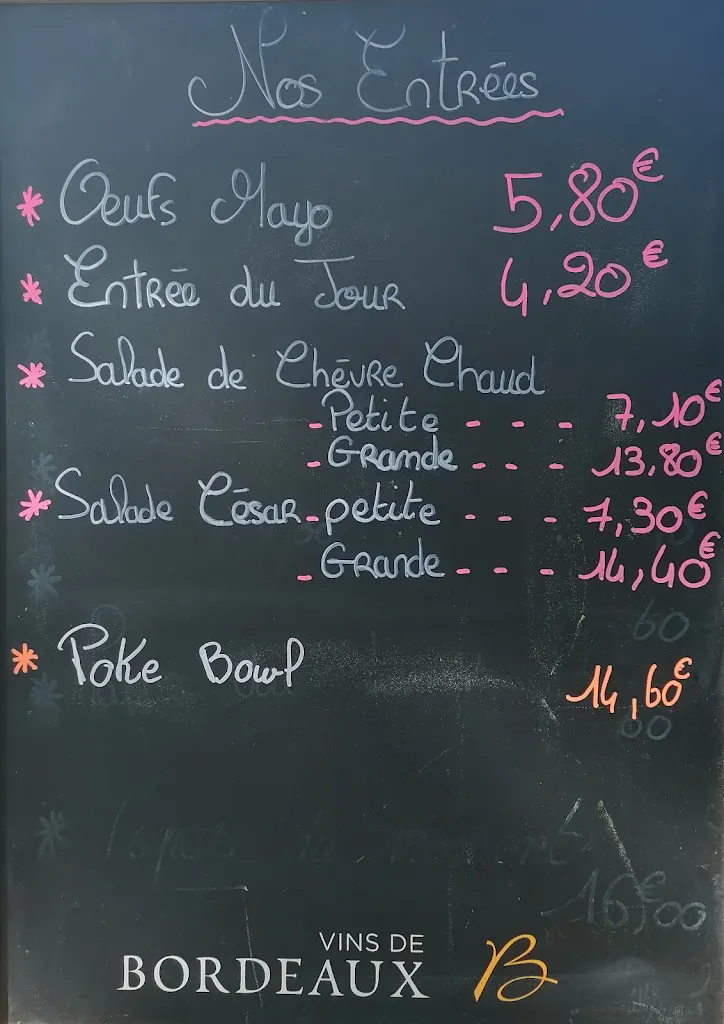 Nos Entrées
* Oeufs Mayo 5,80€
* Entrée du Jour 4,20€
* Salade de Chèvre Chaud
- Petite - - - 7,10€
- Grande - - - 13,80€
* Salade César - petite - - - 7,30€
- Grande - - - 14,40€
60
* Poke Bowl 14,60€
60
16,00€
VINS DE
BORDEAUX B